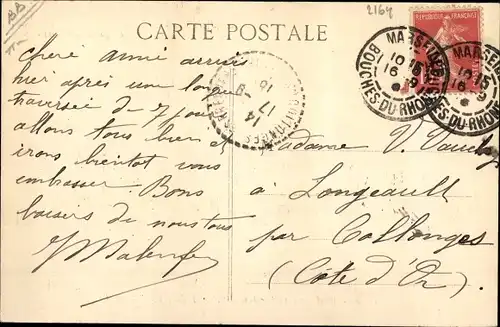 2164
CARTE POSTALE
REPUBLIQUE FRANÇAISE
MARSEILLE
10 15
16 - 9
BOUCHES-DU-RHONE
MARSEILLE
10 15
16 - 9
BOUCHES-DU-RHONE
16
- 9
17
14
Chère amie arrivés
hier après une longue
traversée de 7 jours
allons tous bien et
irons bientôt vous
embrasser. Bons
baisers de nous tous
Madame V.
à Longeault
par Collonges
(Côte d'Or)